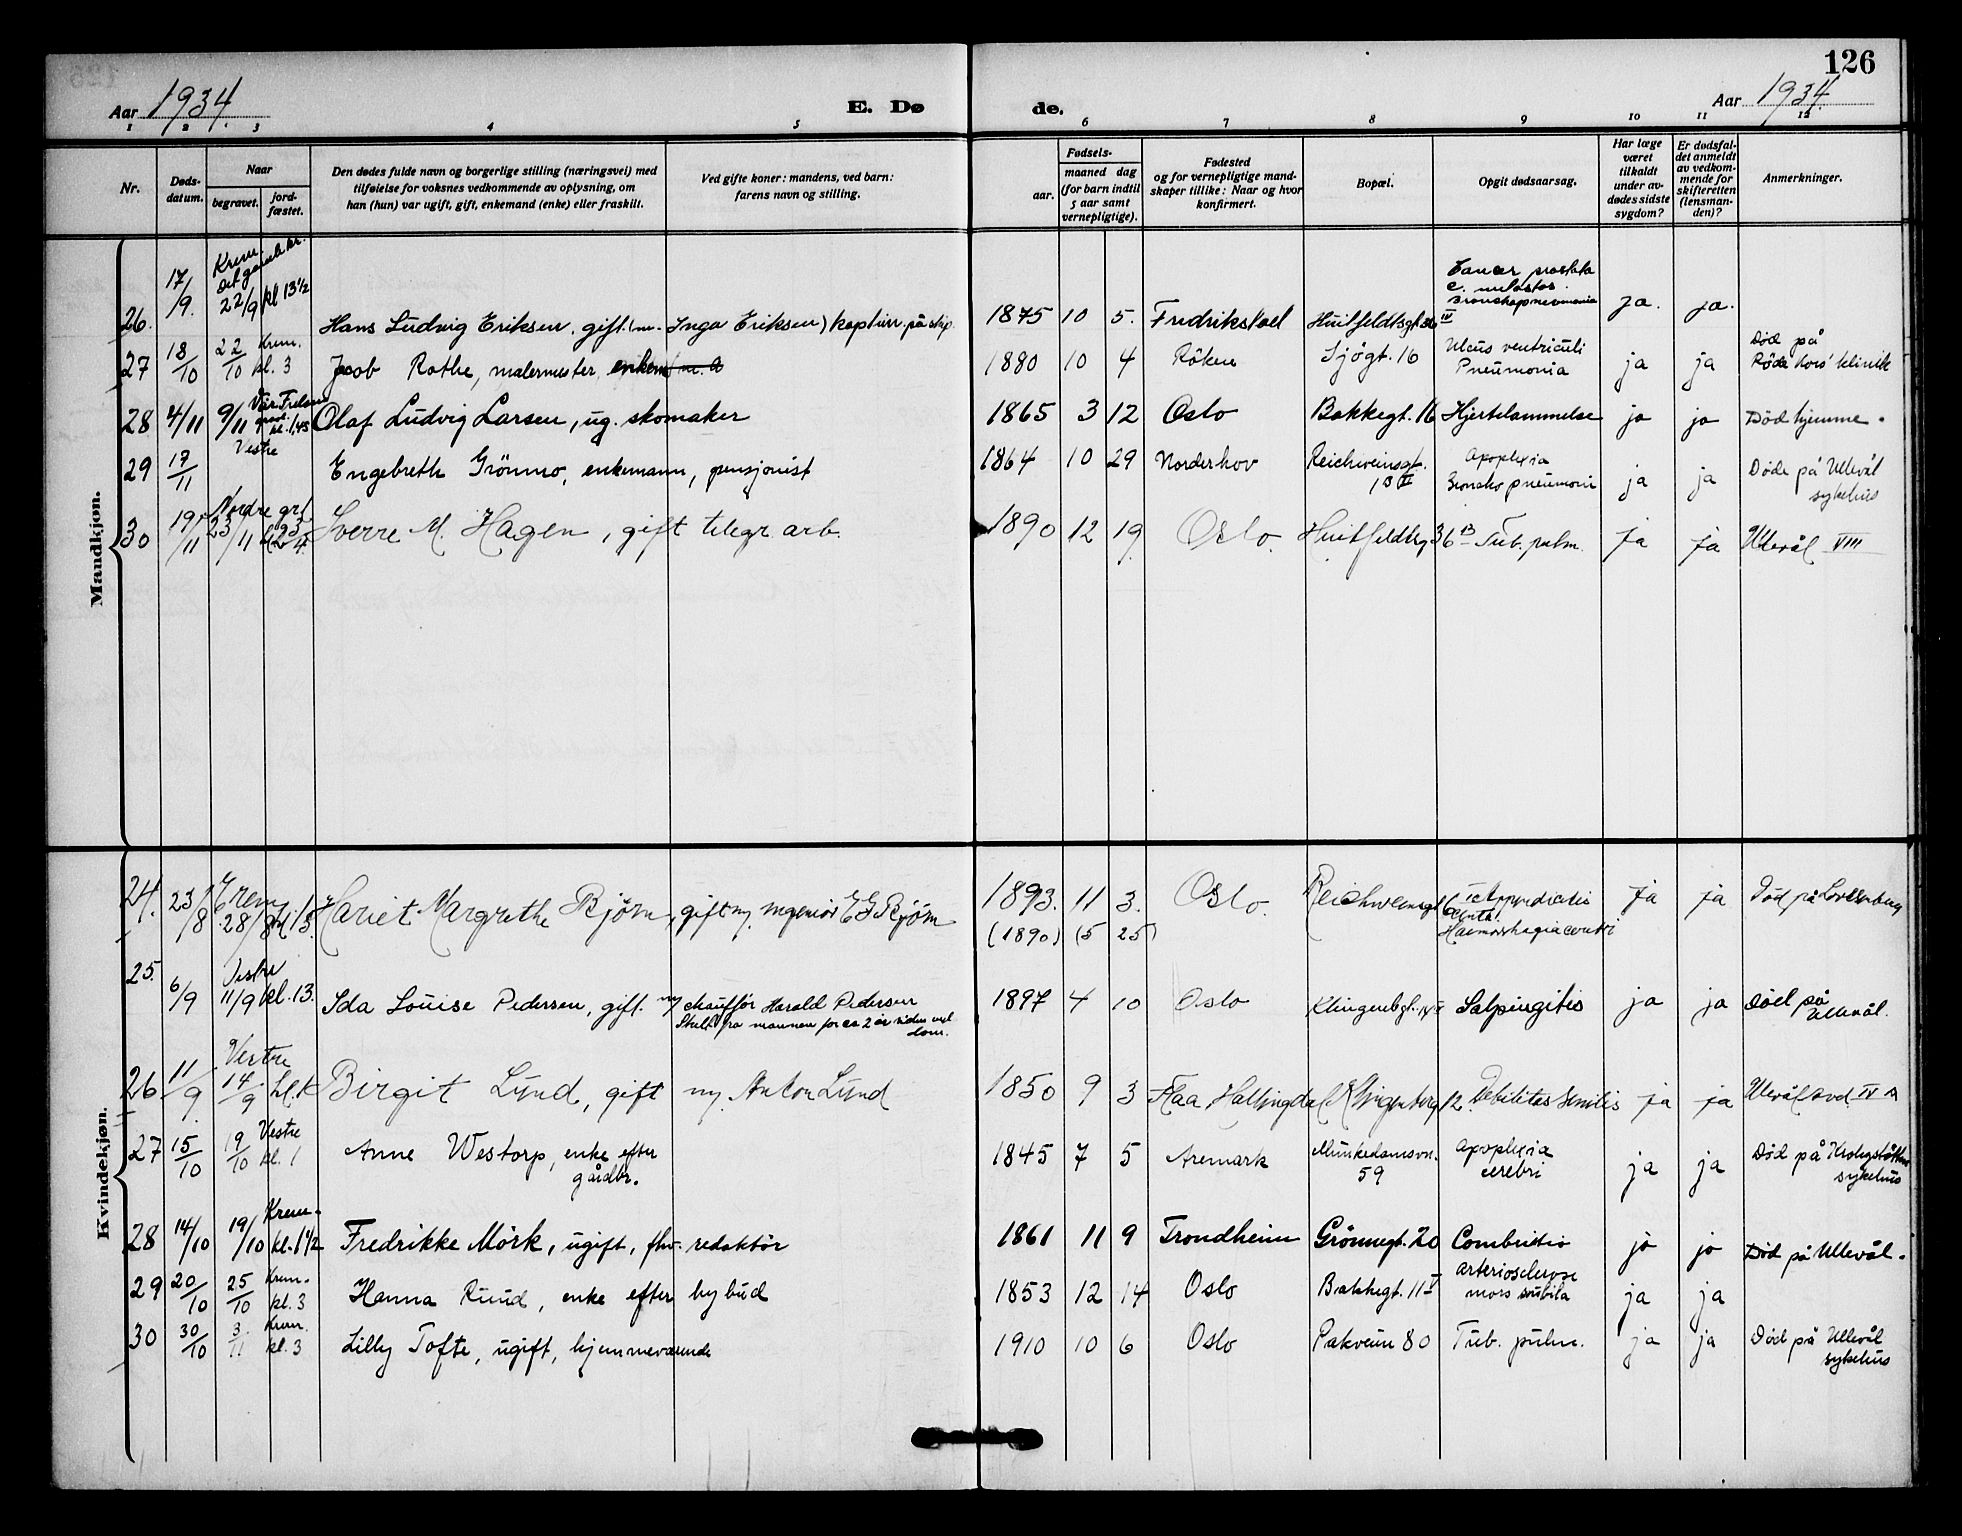 126
Aar 1934
E. Dø
de.
Aar 1934
1 2 3 4 5 6 7 8 9 10 11 12
Nr.
Døds-
datum.
Naar
begravet.
jord-
fæstet.
Den dødes fulde navn og borgerlige stilling (næringsvei) med
tilføielse for voksnes vedkommende av oplysning, om
han (hun) var ugift, gift, enkemand (enke) eller fraskilt.
Ved gifte koner: mandens, ved barn:
farens navn og stilling.
Fødsels-
aar.
maaned dag
(for barn indtil
5 aar samt
vernepligtige).
Fødested
og for vernepligtige mand-
skaper tillike: Naar og hvor
konfirmert.
Bopæl.
Opgit dødsaarsag.
Har læge
været
tilkaldt
under av-
dødes sidste
sygdom?
Er dødsfal-
det anmeldt
av vedkom-
mende for
skifteretten
(lensman-
den)?
Anmerkninger.
Mandkjøn.
26. 17/9. Krem. Det gamle kr. 22/9 kl 13½ Hans Ludvig Eriksen, gift. Inga Eriksen) på skip 1875 10 5. Fredrikstad Huitfeldtsgt 36 IV Cancer prostata
c. metastas.
Bronchopneumonia ja. ja.
27 18/10 22/10 Krem. kl. 3 Jacob Rothe, malermester, 1880 10 4 Röken Sjögt. 16 Ulcus ventriculi
Pneumonia ja ja Död på
Röde kors' klinik
28 4/11 9/11 Vår Frelsers grav. kl. 1,45 Olaf Ludvig Larsen, ug. skomaker 1865 3 12 Oslo Bakkegt. 16 Hjertelammelse ja ja Död hjemme.
29 17/11 Vestre Engebreth Grönmo, enkemann, pensjonist 1864 10 29 Norderhov Reichweinsgt.
1B II Apoplexia
Broncho pneumoni ja ja Döde på Ullevål
sykehus
30 19/11 Nordre gr. 23/11 Sverre M. Hagen, gift telegr. arb. 1890 12 19. Oslo. Huitfeldtsg 36 B Tub. pulm. ja ja Ullevål VIII
Kvindekjøn.
24. 23/8 Krem 28/8 kl. 13. Hariet Margrethe Bjørn, gift m. ingeniør E G Bjørn 1893. 11 3. Oslo. Reichweinsgt 6 Appendicitis
acuta.
Haemorrhagia cerebri ja ja Død på Lovisenberg
(1890) (5 25)
25. 6/9 Vestre 11/9 kl. 13. Ida Louise Pedersen, gift. m/ chauffør Harald Pedersen
Skilt fra mannen for ca 2 år siden ved
dom. 1897 4 10 Oslo Klingenbgt. Salpingitis ja ja Död på
Ullevål.
26 11/9. Vestre 14/9 kl. 1 Birgit Lund, gift m. Anton Lund 1850 9 3 Flaa Hallingdal Klingenberg 12. Debilitas senilis ja ja Ullevål avd. IV
27 15/10 19/10 Vestre kl. 1 Anne Westorp, enke efter
gårdbr. 1845 7 5 Aremark Munkedamsvn.
59 Apoplexia
cerebri ja ja Död på Krohgstötten
sykehus
28 14/10 19/10 Krem. kl. 1½ Fredrikke Mörk, ugift, fhv. redaktör 1861 11 9 Trondheim Grönnegt. 20 Combustio ja ja Död på Ullevål.
29 20/10 25/10 Krem. kl. 3 Hanna Ruud, enke efter bybud 1853 12 14 Oslo Bakkegt. 11 V Arteriosclerose
mors subita ja ja
30 30/10 3/11 Krem. kl. 3 Lilly Tofte, ugift, hjemmeværende 1910 10 6 Oslo Pakveien 80 Tub. pulm. ja ja Död på Ullevål
sykehus